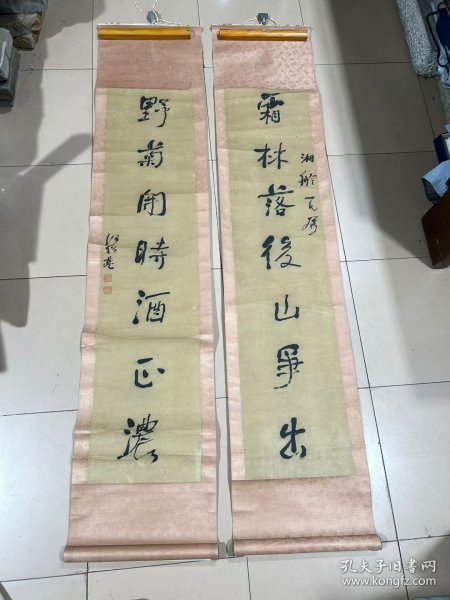 霜林落後山爭出
湘舲
野菊開時酒正濃
孔夫子旧书网
www.kongfz.com